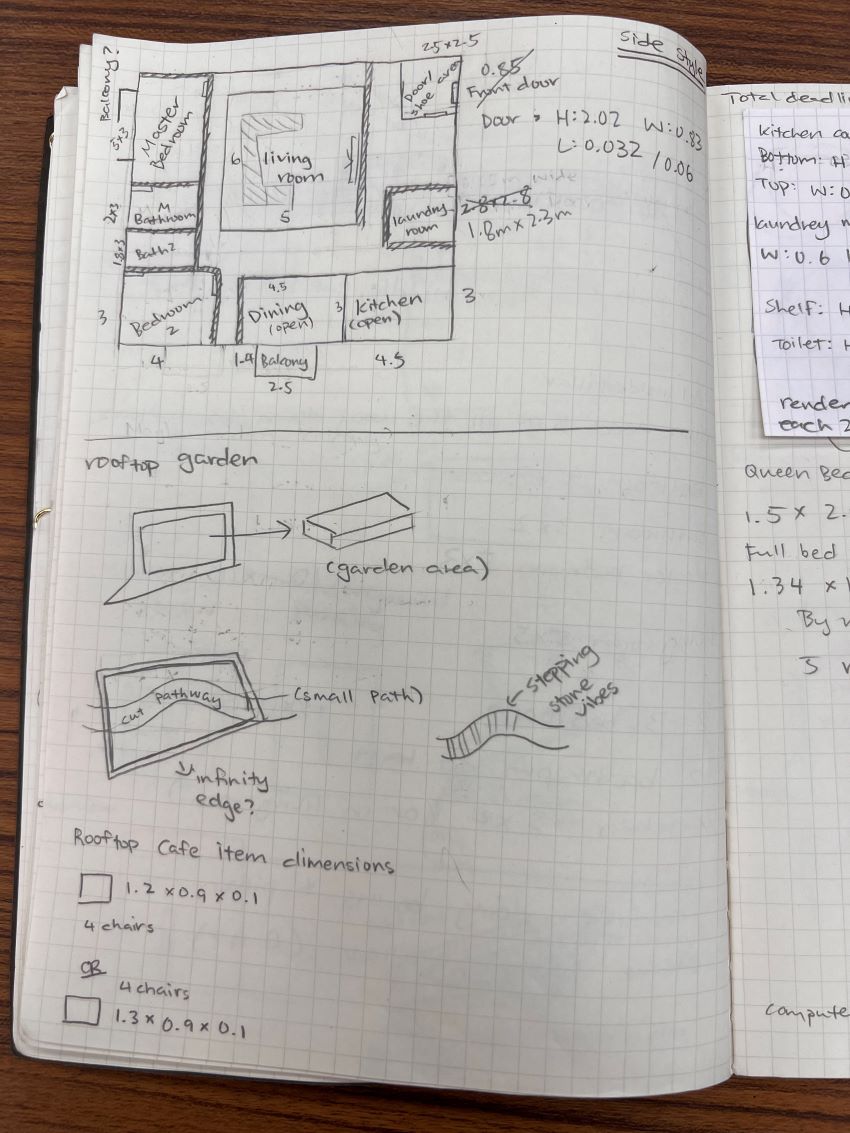 Side Style
Balcony?
5x3
Master
Bedroom
2x3
M
Bathroom
1.8x3
Bath2
3
Bedroom
2
4
6
living
room
5
2.5x2.5
Door/
shoe area
0.85
Front door
Door : H:2.02 W:0.83
L:0.032 /0.06
laundry
room
2.8x2.8
1.8m x 2.3m
4.5
Dining
(open)
3
kitchen
(open)
3
1.4
Balcony
2.5
4.5
rooftop garden
(garden area)
cut pathway
(small path)
stepping
stone
vibes
infinity
edge?
Rooftop Cafe item dimensions
1.2 x 0.9 x 0.1
4 chairs
OR
4 chairs
1.3 x 0.9 x 0.1
Total
kitchen
Bottom: H
Top: W:0
laundrey
W: 0.6
Shelf: H
Toilet: H
render
each 2
Queen Bed
1.5 x 2.
Full bed
1.34 x
By
3